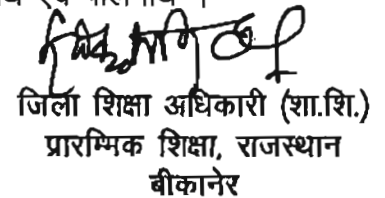 जिला शिक्षा अधिकारी (शा.शि.)
प्रारम्भिक शिक्षा, राजस्थान
बीकानेर